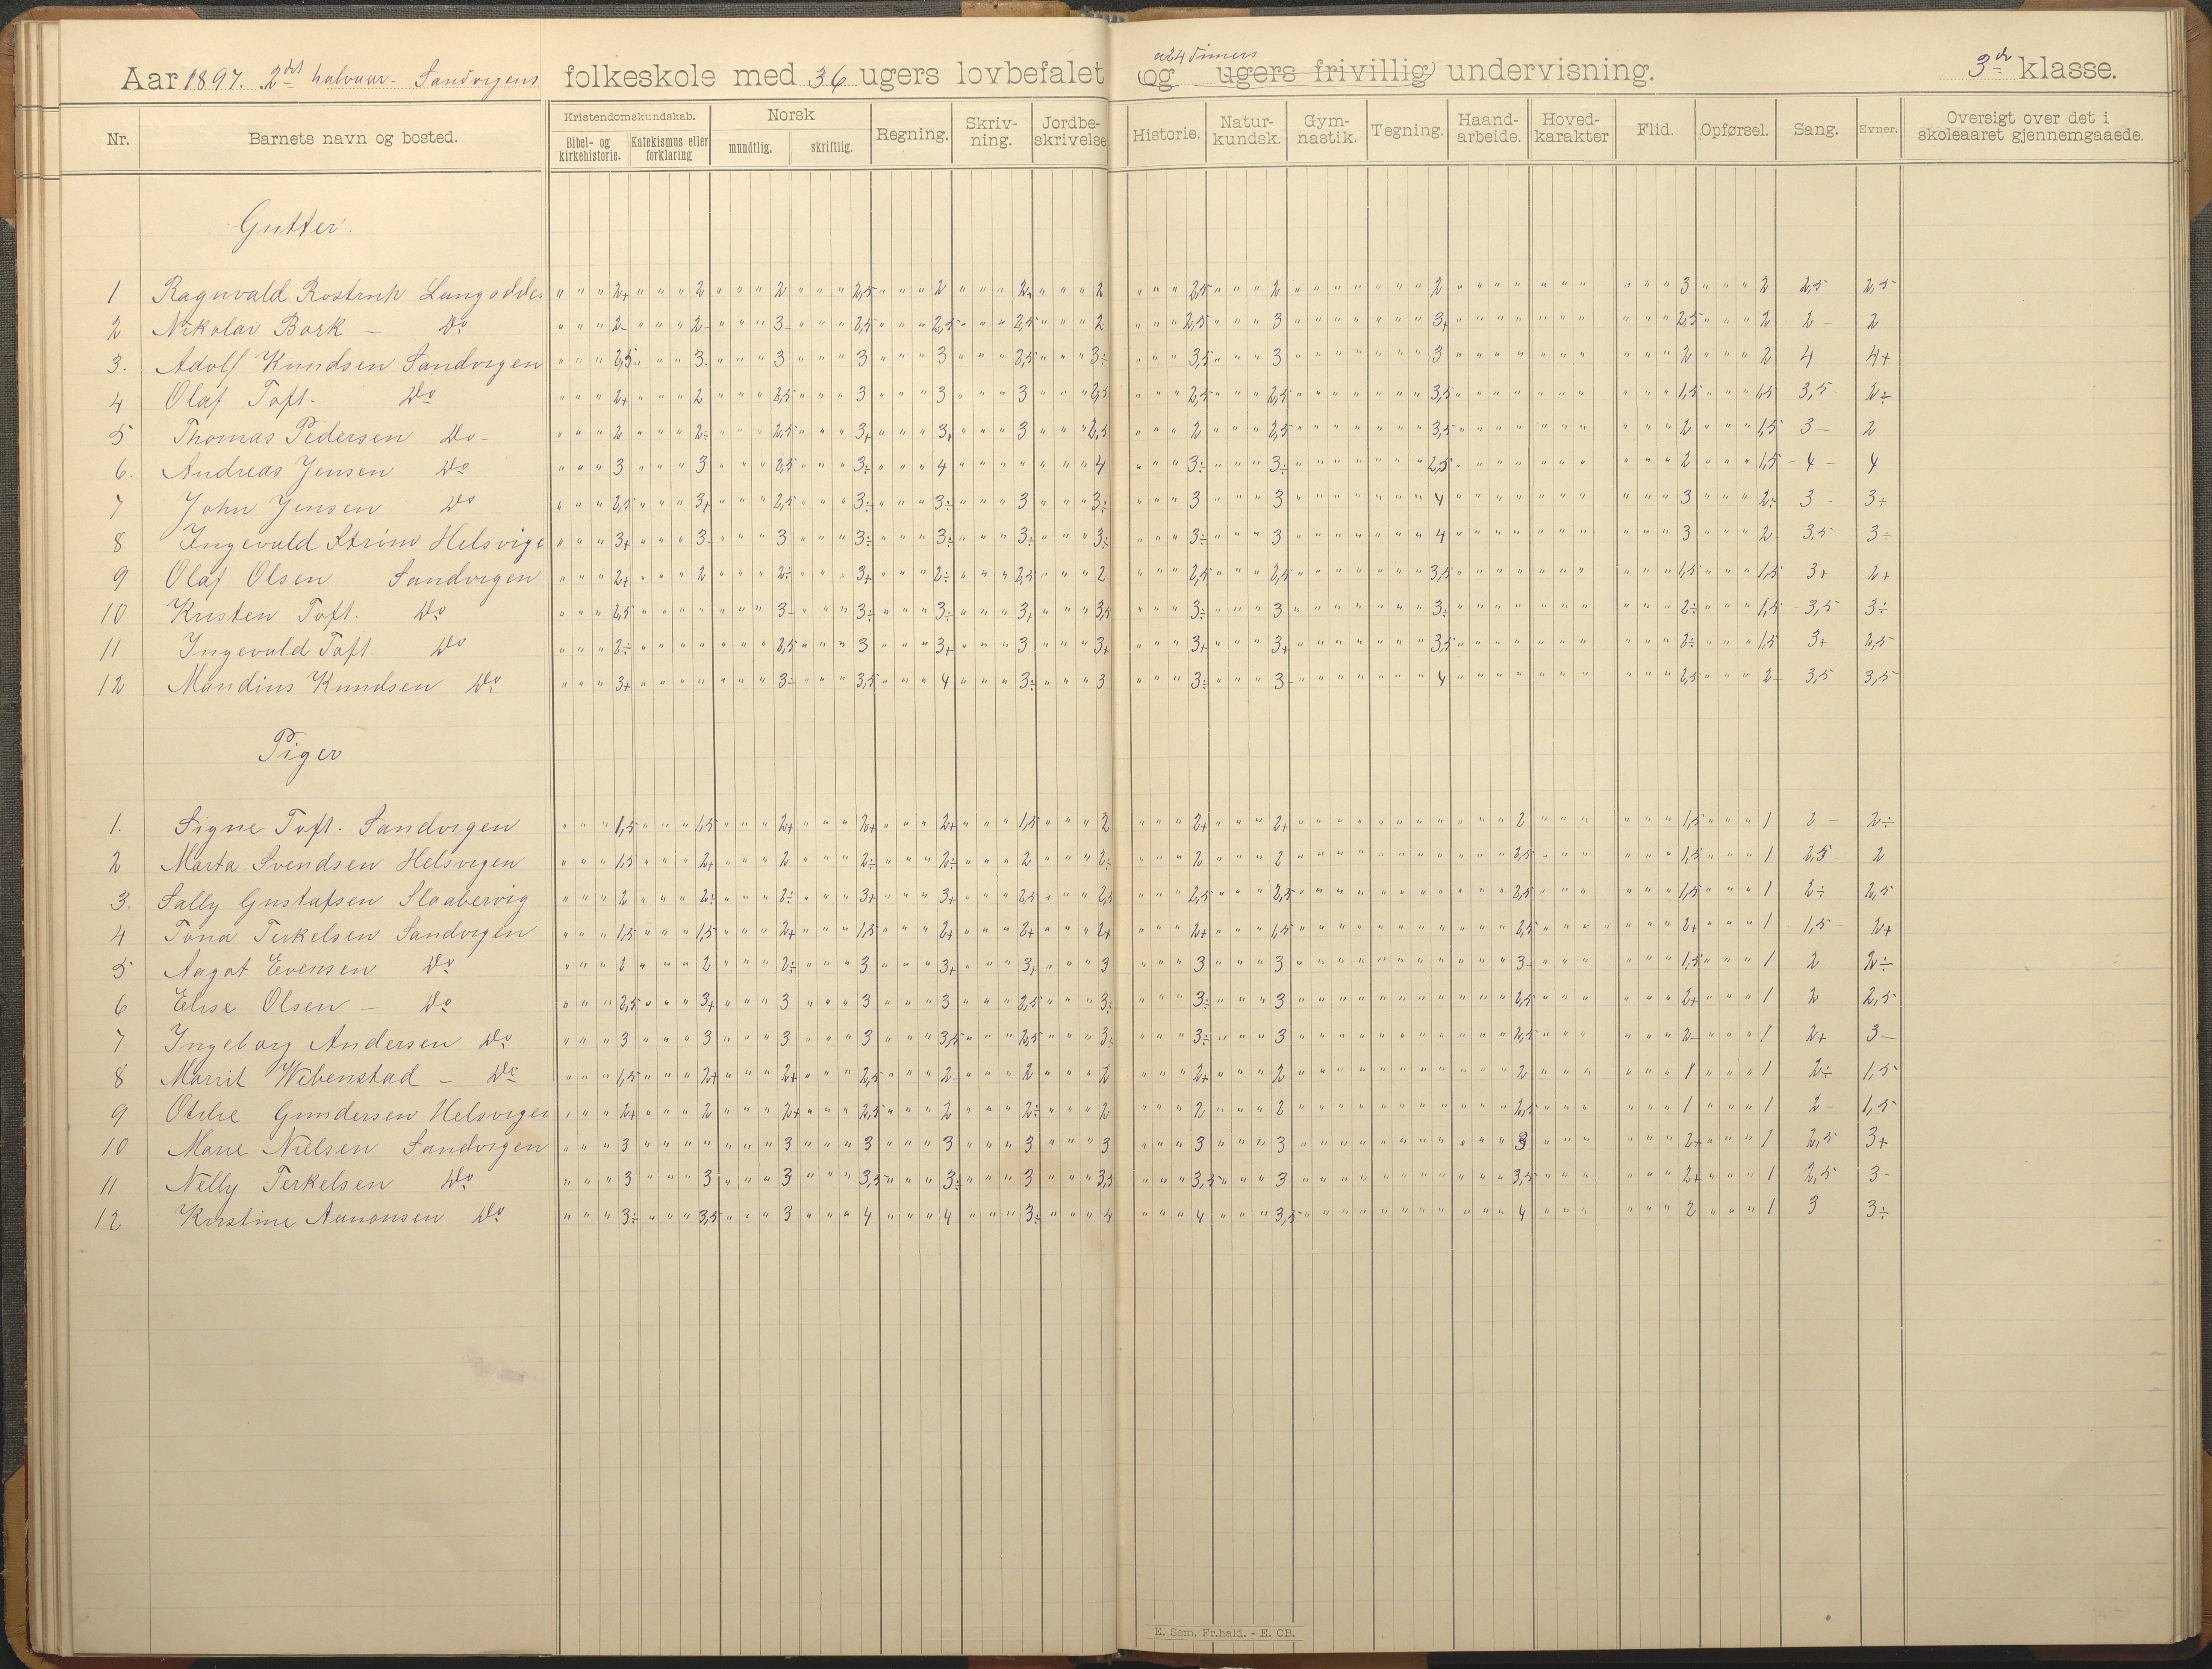 Aar 1897. 2det halvaar - Sandvigens folkeskole med 36 ugers lovbefalet og a 24 Timers ugers frivillig undervisning. 3die klasse.
Nr. Barnets navn og bosted. Kristendomskundskab. Bibel- og kirkehistorie. Katekismus eller forklaring Norsk mundtlig. skriftlig. Regning. Skriv-ning. Jordbe-skrivelse Historie. Natur-kundsk. Gym-nastik. Tegning. Haand-arbeide. Hoved-karakter Flid. Opførsel. Sang. Evner. Oversigt over det i skoleaaret gjennemgaaede.
Gutter.
1 Ragnvald Rostrup 2+ 2 2 2,5 2 2 2,5 2 2 3 2 2,5 2,5
2 Nikolai Bork - Do 2- 2- 3- 2,5 2,5 2,5 2 2,5 3 3+ 2,5 2 2- 2
3. Adolf Knudsen Sandvigen 2,5 3 3 3 3 2,5 3÷ 3,5 3 3 2 2 4 4+
4 Olaf Toft. Do 2+ 2 2,5 3 3 3 2,5 2,5 2,5 3,5 1,5 1,5 3,5 2÷
5 Thomas Pedersen Do - 2 2÷ 2,5 3+ 3+ 3 2,5 2 2,5 3,5 2 1,5 3- 2
6. Andreas Jensen Do 3 3 2,5 3÷ 4 " 4 3÷ 3÷ 2,5 2 1,5 4 - 4
7 John Jensen Do 2,5 3+ 2,5 3÷ 3÷ 3 3÷ 3 3 4 3 2÷ 3 3÷
8 Ingevald Strøm Helsvige 3+ 3- 3 3÷ 3÷ 3÷ 3÷ 3÷ 3 4 3 2- 3,5 3÷
9 Olaf Olsen Sandvigen 2+ 2 2÷ 3+ 2÷ 2,5 2 2,5 2,5 3,5 1,5 1,5 3+ 2+
10 Kristen Toft. Do 2,5 " 3- 3÷ 3÷ 3+ 3,5 3÷ 3 3÷ 2÷ 1,5 3,5 3÷
11 Ingevald Toft. Do 2÷ " 2,5 3 3+ 3 3+ 3+ 3+ 3,5 2÷ 1,5 3+ 2,5
12 Mandius Knudsen Do 3+ " 3- 3,5 4 3÷ 3 3÷ 3- 4 2,5 2- 3,5 3,5
Piger
1. Signe Toft. Sandvigen 1,5 1,5 2+ 2+ 2+ 1,5 2 2+ 2+ 2 1,5 1 2- 2÷
2 Marta Svendsen Helsvigen 1,5 2+ 2 2÷ 2÷ 2 2÷ 2 2 2,5 1,5 1 2,5 2
3. Sally Gustafsen Slaabervig 2 2÷ 2÷ 3+ 3+ 2,5 2,5 2,5 2,5 2,5 1,5 1 2÷ 2,5
4 Tona Terkelsen Sandvigen 1,5 1,5 2+ 1,5 2+ 2+ 2+ 2+ 1,5 2,5 2+ 1 1,5 - 2+
5 Aagot Evensen Do 2 2 2÷ 3 3+ 3+ 3 3 3 3- 1,5 1 2 2÷
6 Elise Olsen - Do 2,5 3+ 3 3 3 2,5 3÷ 3÷ 3 2,5 2+ 1 2 2,5
7 Ingeborg Andersen Do 3 3 3 3 3,5 2,5 3÷ 3÷ 3 2,5 2- 1 2+ 3-
8 Marrit Webenstad - Do 1,5 2+ 2+ 2,5 2- 2 2 2+ 2 2 1 1 2÷ 1,5
9 Otilie Gundersen Helsvigen 2+ 2 2+ 2,5 2 2÷ 2 2 2 2,5 1 1 2- 1,5
10 Marie Nielsen Sandvigen 3 " 3 3 3 3 3 3 3 3 2+ 1 2,5 3+
11 Nelly Terkelsen Do 3 3 3 3,5 3÷ 3 3,5 3,5 3 3,5 2+ 1 2,5 3-
12 Kristine Aanonsen Do 3÷ 3,5 3 4 4 3÷ 4 4 3,5 4 2 1 3 3÷
E. Sem, Fr.hald. - E. CB.